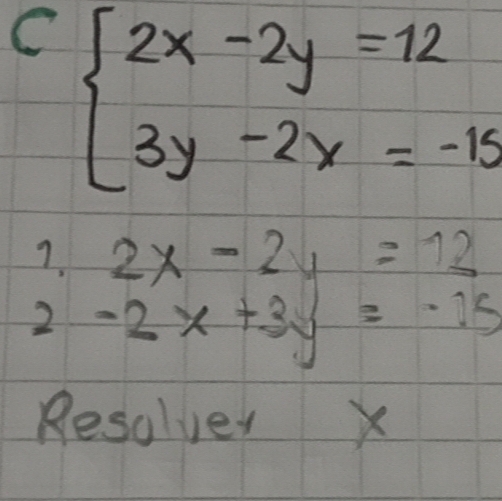 C { 2x - 2y = 12
3y - 2x = -15
1. 2x - 2y = 12
2 -2x + 3y = -15
Resolver x